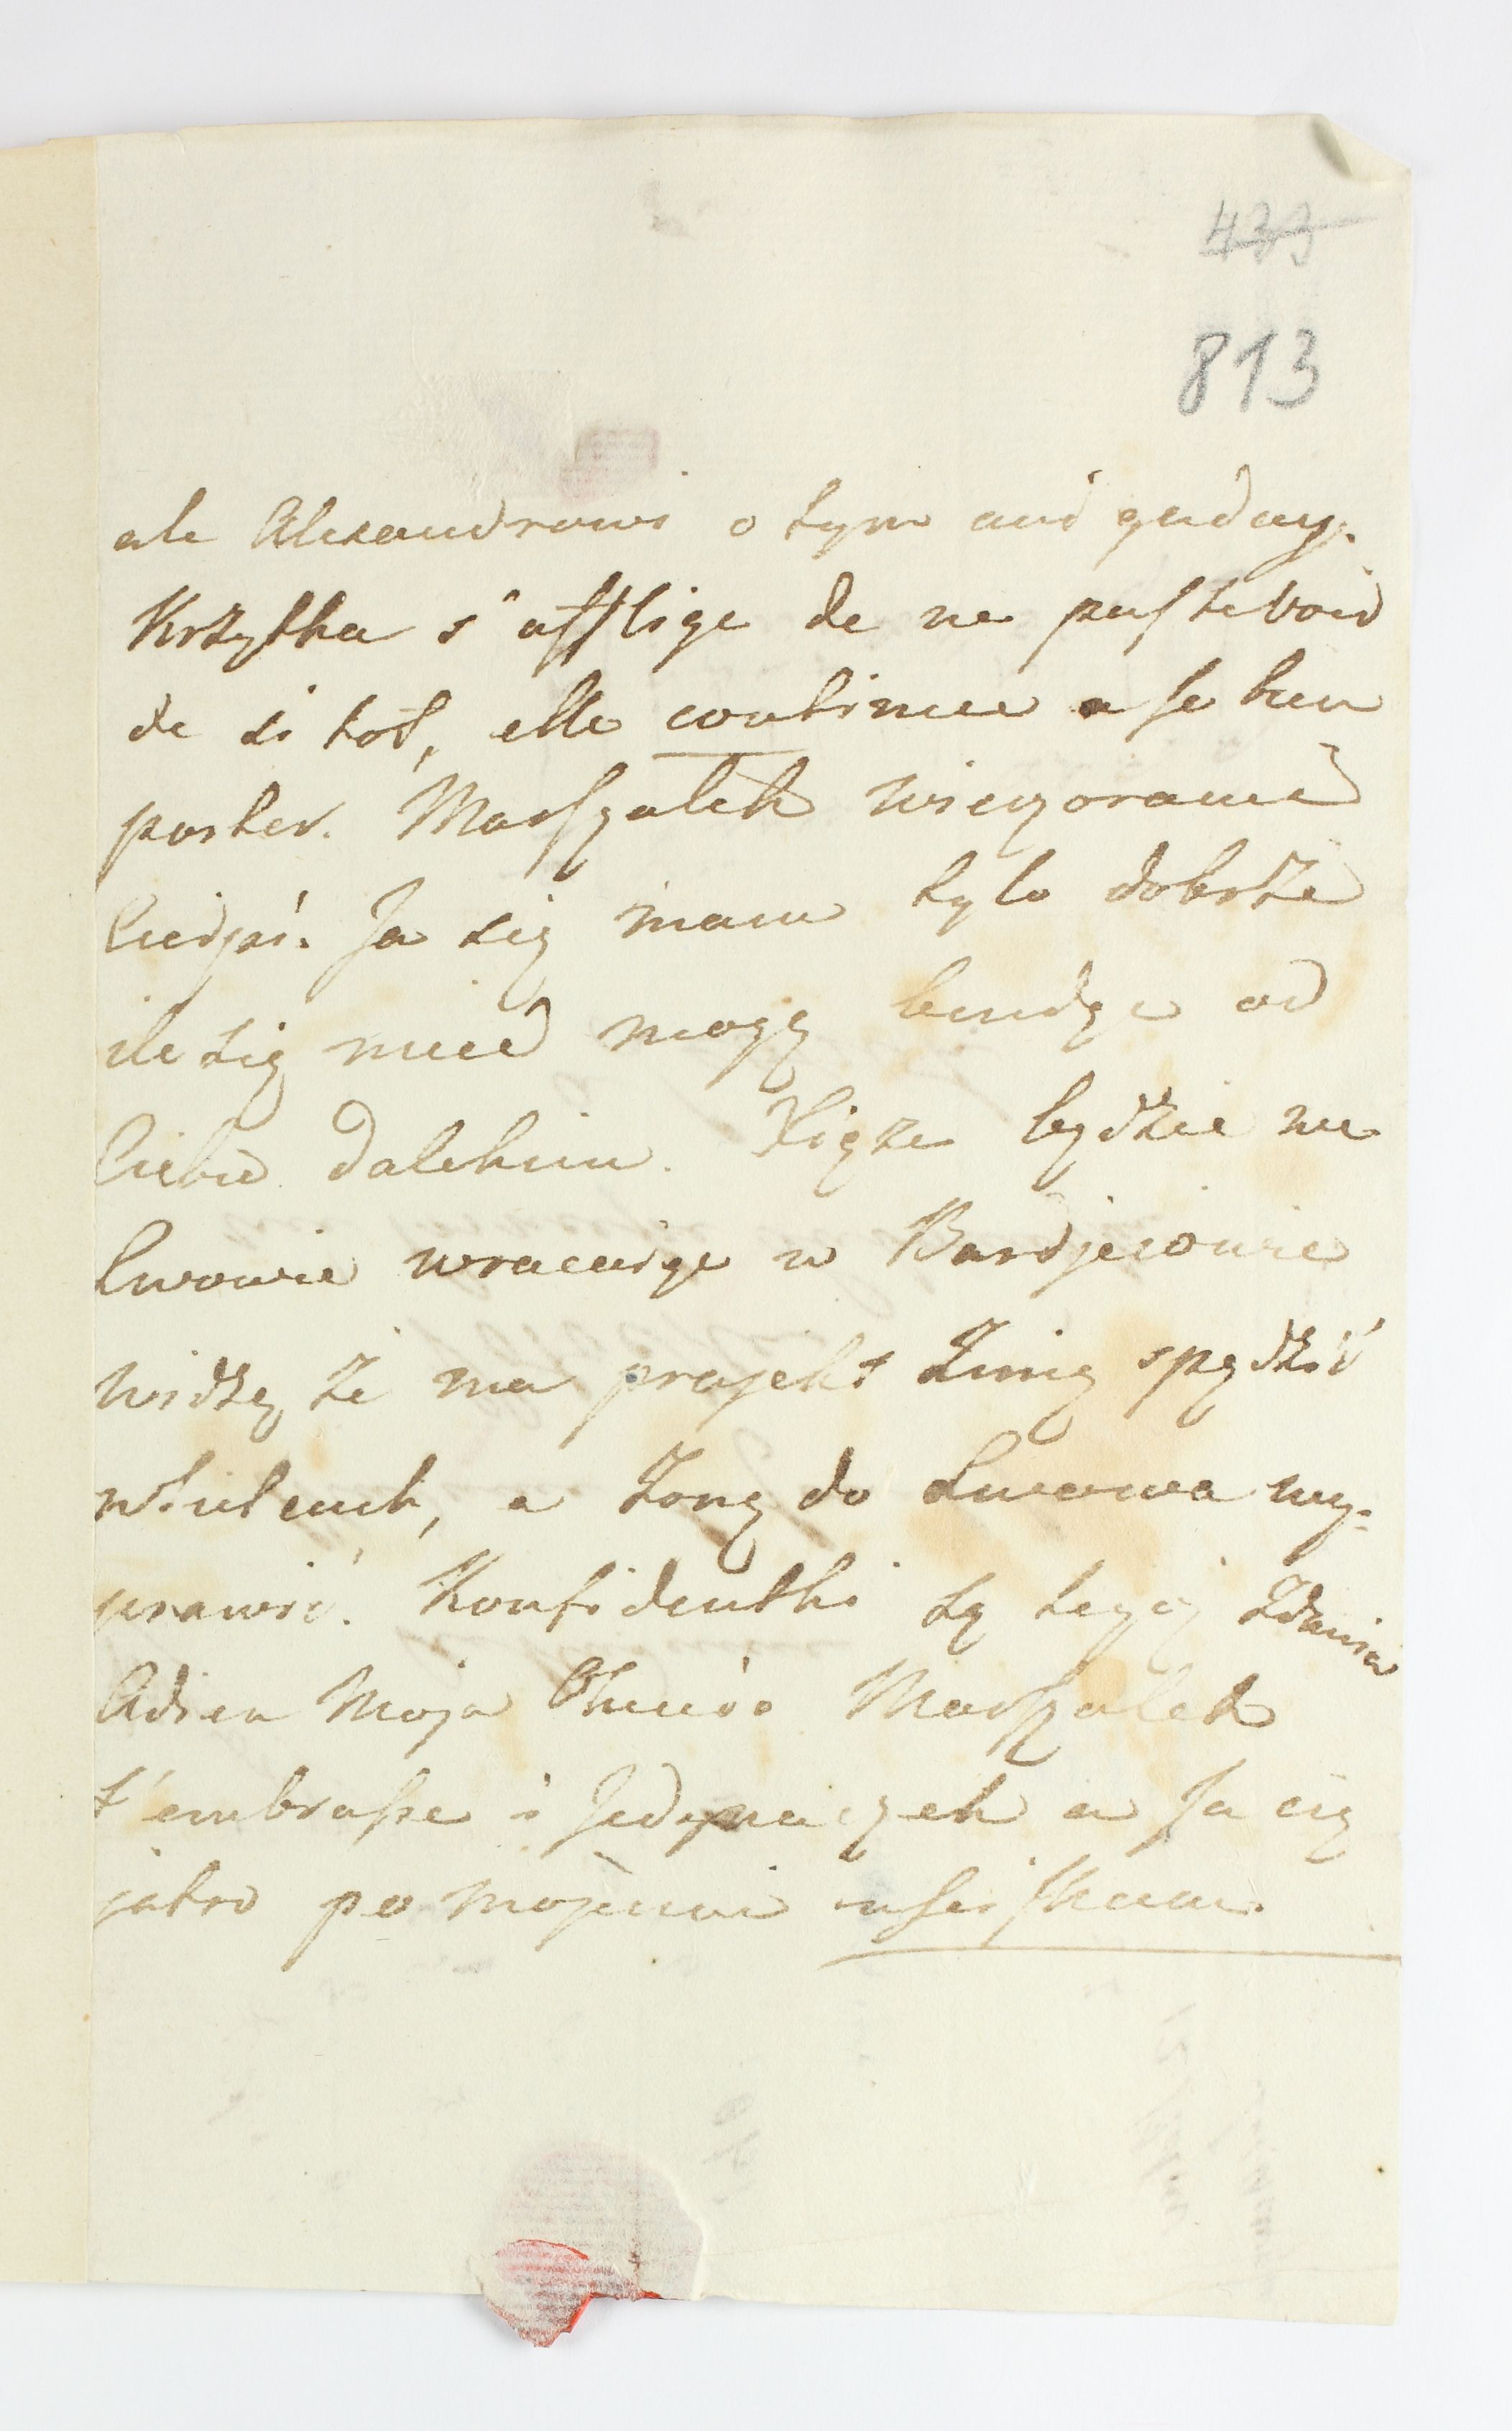 433
813
ale Alexandrowi o tym ani gaday.
Krzysha s'afflige de ne pas te voir
de si tot, elle continue a se bien
porter. Marszałek wieczorami
Cierpi. Ja się mam tylo dobrże
ile się mieć mogę bendąc od
Ciebie dalekim. Xiąże będżie we
Lwowie wracaiąc w Bardjeiowie
widżę że ma projekt Zimę spędżić
w a Żonę do Lwowa wy:
prawić. Konfidentki są tegoj zdania
Adieu Moja Marszałek
t'embrasse i Jedynaczek a Ja cię
jako po mojemu usciskam.